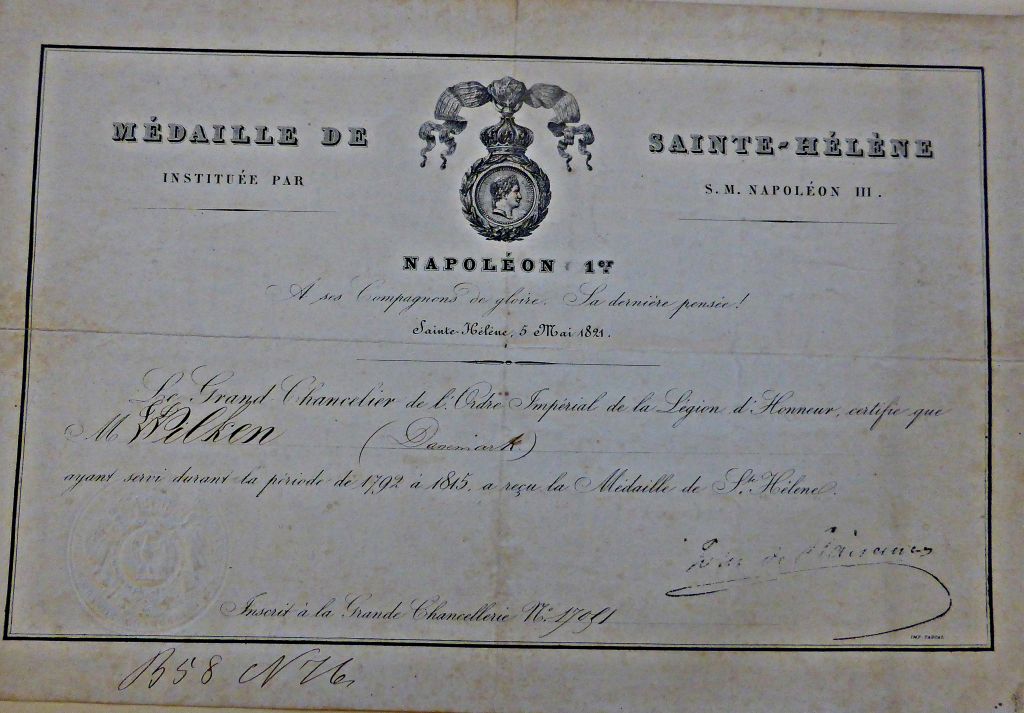 MÉDAILLE DE SAINTE-HÉLÈNE
INSTITUÉE PAR S. M. NAPOLÉON III.
NAPOLÉON 1er
A ses Compagnons de gloire. Sa dernière pensée!
Sainte-Hélène, 5 Mai 1821.
Le Grand Chancelier de l'Ordre Impérial de la Légion d'Honneur, certifie que
M Wilken (Danemark)
ayant servi durant la période de 1792 à 1815, a reçu la Médaille de Ste Hélène.
de Plaisance
Inscrit à la Grande Chancellerie No.
IMP. TARDIF
B58 N76